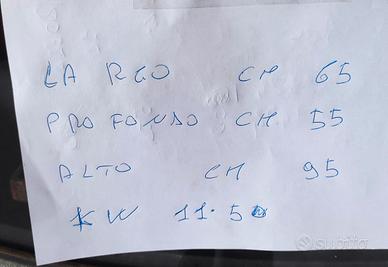 LARGO CM 65
PROFONDO CM 55
ALTO CM 95
KW 11.50
subito